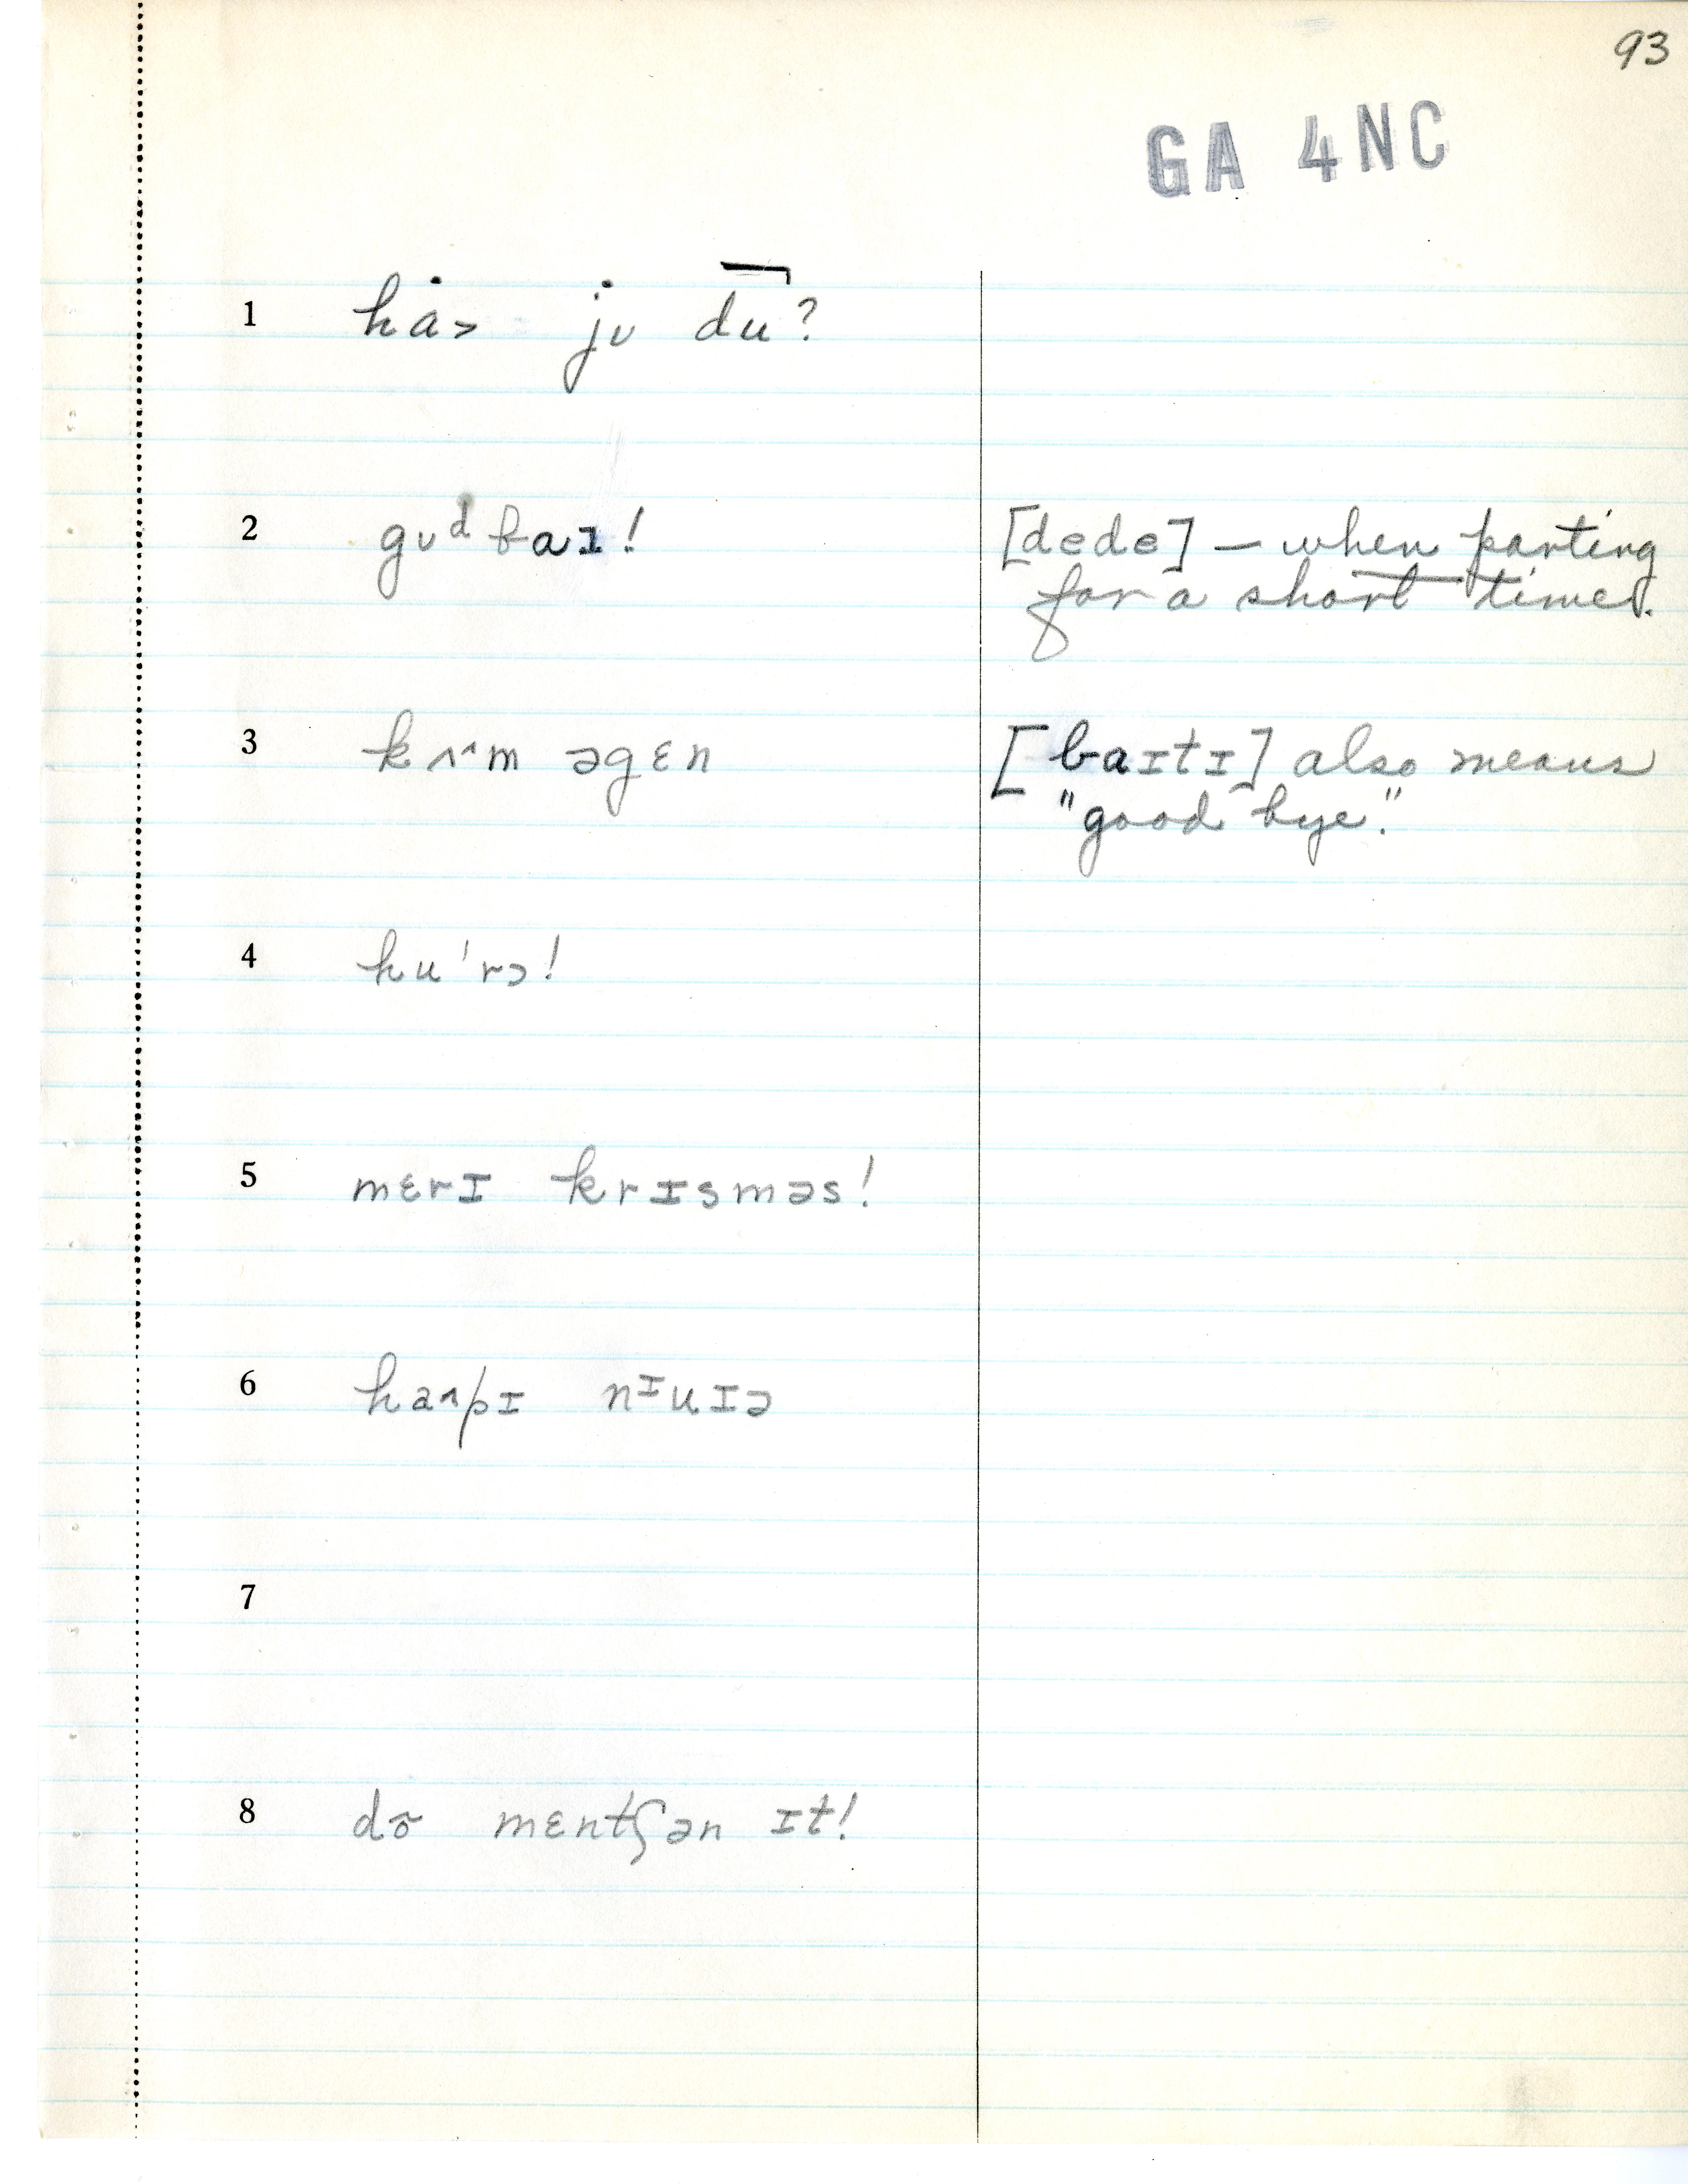 93
GA 4NC
1 ha˃ jʊ du?
2 gʊᵈbaɪ! [dede] — when parting
for a short time.
3 kʌ^m əgɛn [baɪtɪ] also means
"good bye."
4 hu'rɔ!
5 mɛrɪ krɪsməs!
6 ha^pɪ nᶦuɪə
7
8 dõ mɛntʃən ɪt!